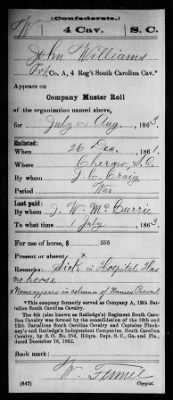 (Confederate.)
W 4 Cav. S. C.
John Williams
Pvt, Co. A, 4 Reg't South Carolina Cav.*
Appears on
Company Muster Roll
of the organization named above,
for July & Aug, 1863.
Enlisted:
When 26 Dec, 1861.
Where Cheraw, S.C.
By whom J. C. Craig
Period War
Last paid:
By whom J. W. McCurrie
To what time 1 July, 1863.
For use of horse, $ 100
Present or absent
Remarks: Sick in Hospital. Has
no horse
*This company formerly served as Company A, 12th Battalion South Carolina Cavalry.
The 4th (also known as Rutledge's) Regiment South Carolina Cavalry was formed by the consolidation of the 10th and 12th Battalions South Carolina Cavalry and Captains Pinckney's and Rutledge's Independent Companies, South Carolina Cavalry, by S. O. No. 254, Hdqrs. Dept. S. C., Ga. and Fla., dated December 16, 1862.
Book mark:
(642) Copyist.